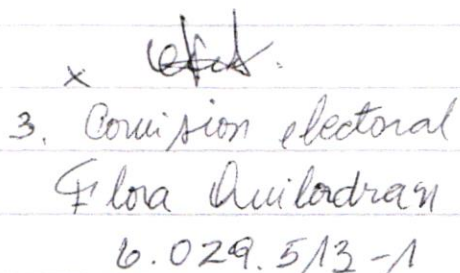 x
3. Comision electoral
Flora Quilodran
6.029.513-1